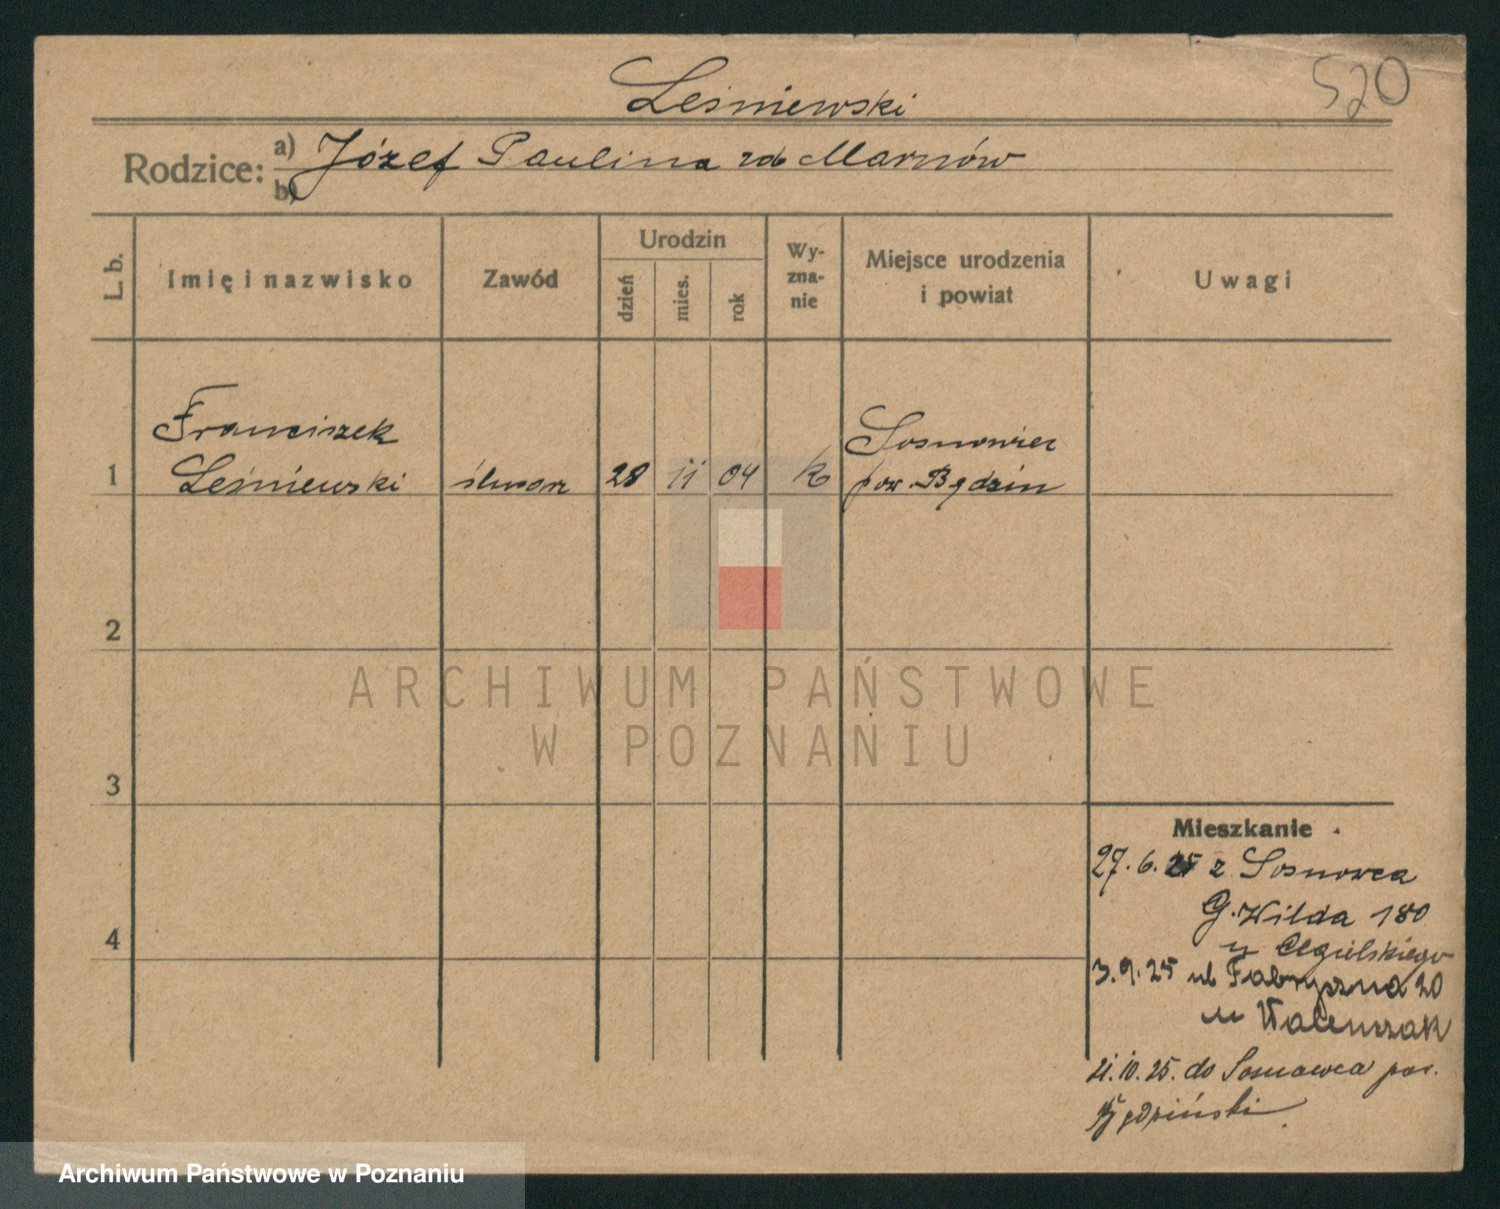 Leśniewski
520
Rodzice: a) Józef Paulina zd. Marnów
b)
L. b.
Imię i nazwisko
Zawód
Urodzin
dzień
mies.
rok
Wy-
zna-
nie
Miejsce urodzenia
i powiat
Uwagi
1
Franciszek
Leśniewski
ślusarz
28
11
04
k
Sosnowiec
pow. Będzin
2
3
4
ARCHIWUM PAŃSTWOWE
W POZNANIU
Mieszkanie
27.6.25 z Sosnowca
G. Wilda 180
u Cegielskiego
3.9.25 ul Fabryczna 20
u Walenczak
21.10.25. do Sosnowca pow.
Będziński
Archiwum Państwowe w Poznaniu